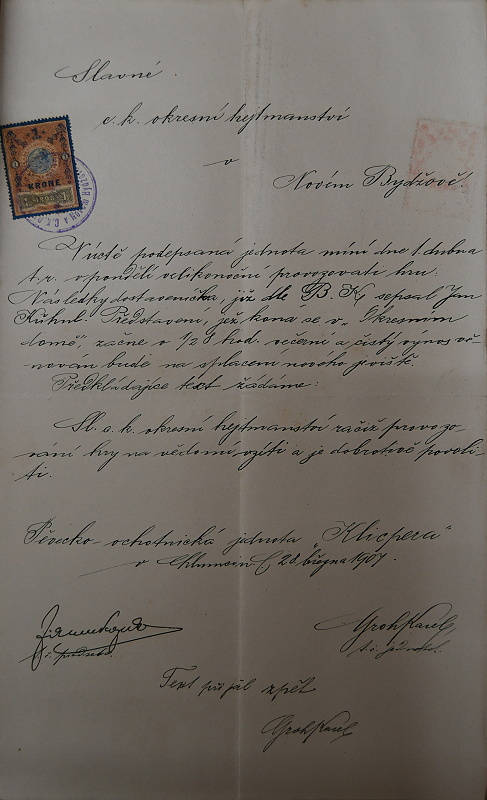 Slavné
c. k. okresní hejtmanství
v
Novém Bydžově!
1
KRONE
1 1898 1
V úctě podepsaná jednota míní dne 1. dubna
t. r. v pondělí velikonoční provozovati hru:
Následky dostaveníčka, již dle B. K. sepsal Jan
Kühnl. Představení, jež koná se v „Okresním
domě", začne o ½8 hod. večerní a čistý výnos vě-
nován bude na splacení nového jeviště.
Předkládajíce text žádáme:
Sl. c. k. okresní hejtmanství račiž provozo-
vání hry na vědomí vzíti a je dobrotivě povoli-
ti.
Pěvecko-ochotnická jednota „Klicpera"
v Chlumcin. C. 28 března 1907.
Groh Karel,
t. č. jednatel.
t. č. předseda.
Text přijal zpět
Groh Karel